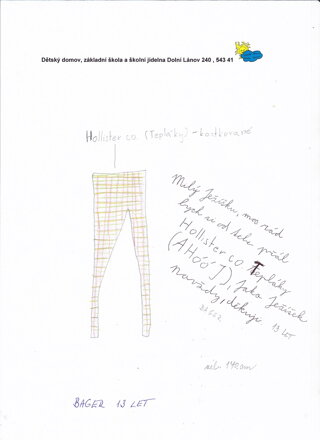 Dětský domov, základní škola a školní jídelna Dolní Lánov 240 , 543 41
Hollister co. (Tepláky) - kostkované
Milý Ježíšku, moc rád
bych si od tebe přál
Hollister co Tepláky
(AHóój), Jako Ježíšek
navždy, děkuji
BAGER 13 LET
vel. 170cm
BAGER 13 LET